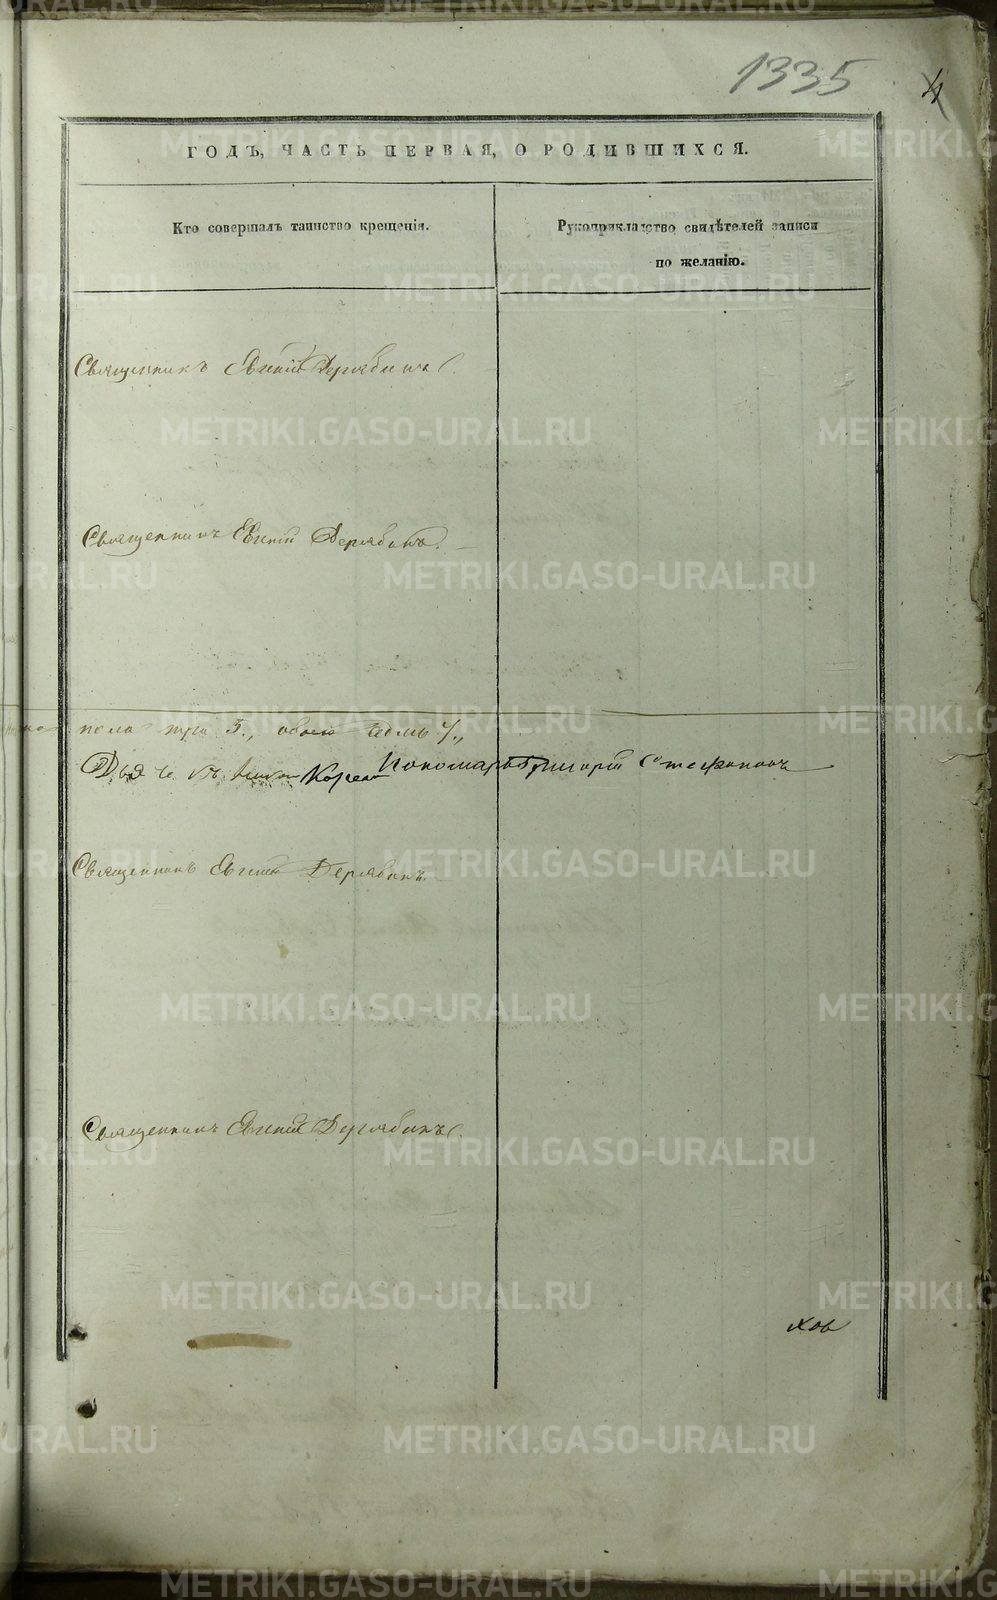 1335
4
ГОДЪ, ЧАСТЬ ПЕРВАЯ, О РОДИВШИХСЯ.
Кто совершалъ таинство крещенія.
Рукоприкладство свидѣтелей записи
по желанію.
Священникъ Евгеній Дерябинъ
Священникъ Евгеній Дерябинъ.
пола три 3., обоего седмь 7.,
Дьячекъ Пономарь Григорій Стефановъ
Священникъ Евгеній Дерябинъ
Священникъ Евгеній Дерябинъ
ховъ
METRIKI.GASO-URAL.RU